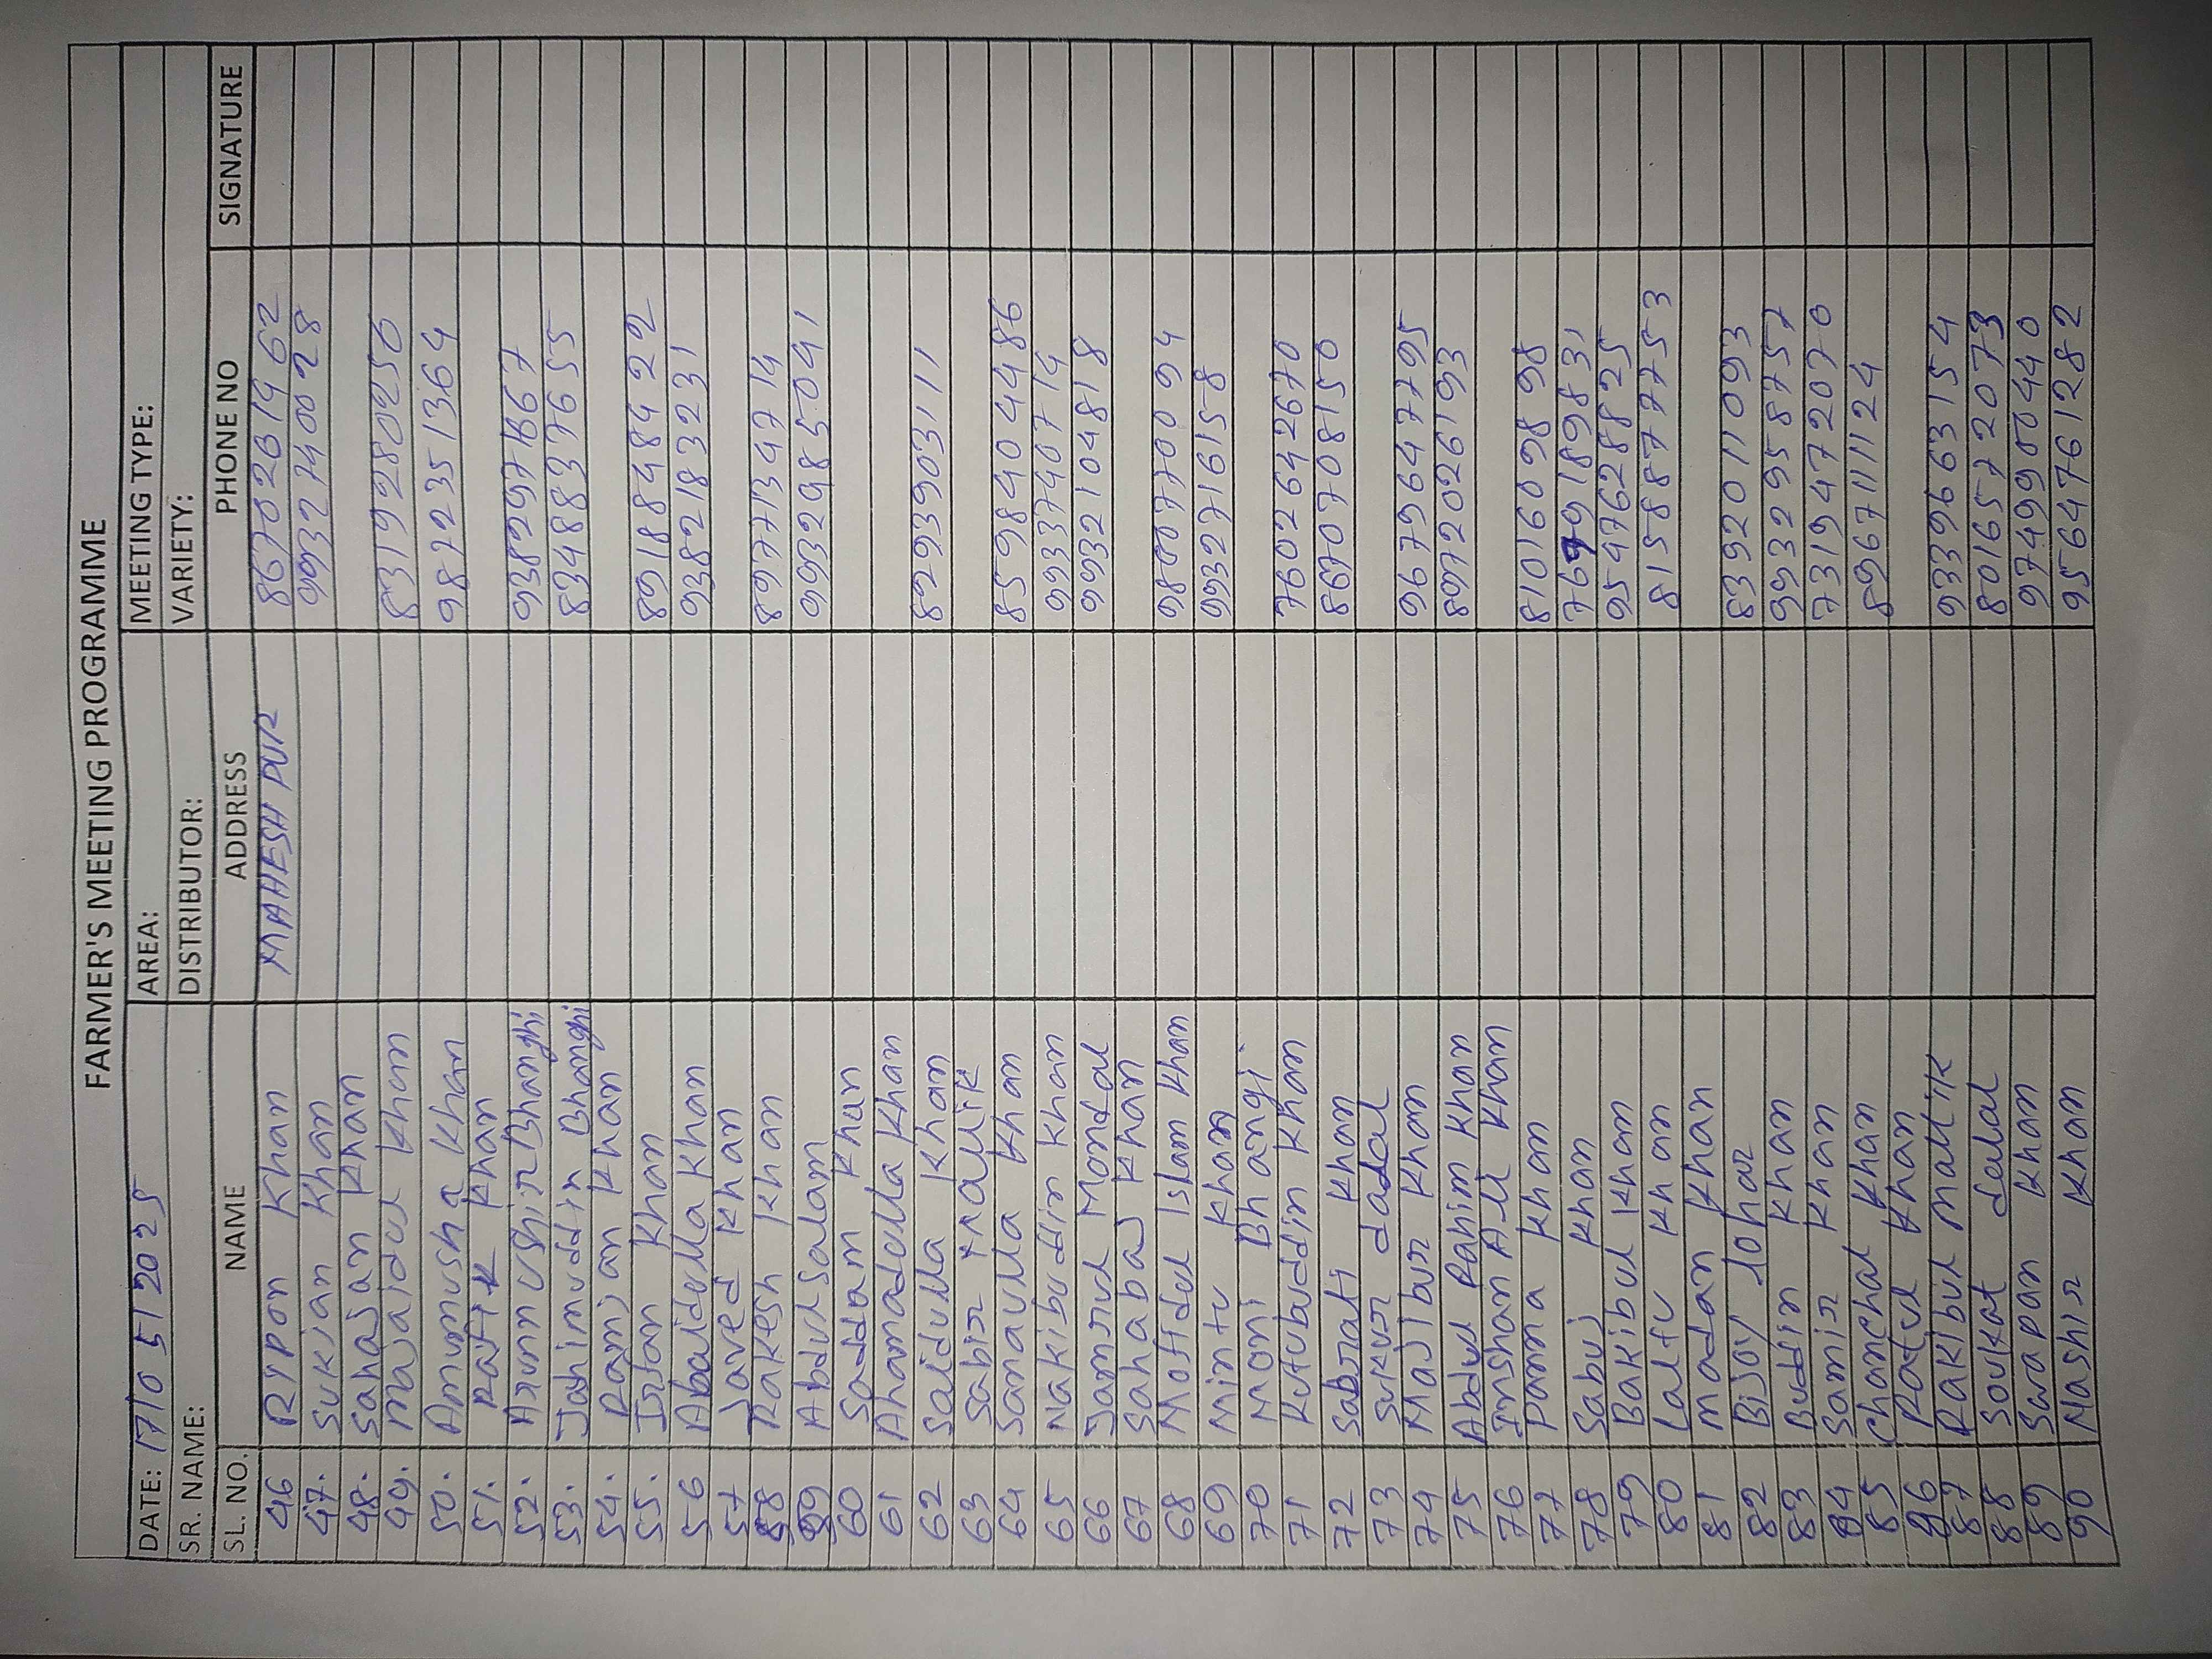 FARMER'S MEETING PROGRAMME
DATE: 17/05/2025 AREA: MEETING TYPE:
SR. NAME: DISTRIBUTOR: VARIETY:
SL. NO. NAME ADDRESS PHONE NO SIGNATURE
46 Ripon Khan MAHESH PUR 8670261462
47. Sukjan Khan 9932740028
48. Sahajan Khan
49. Majaidul Khan 8319280250
50. Amunusha Khan 9822351364
51. Rafik Khan
52. Arunushir Bhanghi
53. Jahimuddin Bhanghi 8348837655
54. Ramjan Khan
55. Irfan Khan 8918848422
56 Abaidulla Khan 9382183231
57 Javed Khan
58 Rakesh Khan 8977134714
59 Abdulsalam 9932985041
60 Saddam Khan
61 Ahamadulla Khan
62 Saidulla Khan 8293903111
63 Sabir mallik
64 Sanaulla Khan 8598404486
65 Nakibuddin Khan 9933740714
66 Jamrul Mondal 9932104818
67 Sahabaj Khan
68 Moffdul Islam Khan 9800770094
69 Mintu Khan 9932716158
70 Moni Bhangi
71 Kutubuddin Khan 7602642670
72 Sabrati Khan 8670708150
73 Sukur dadal
74 Majibur Khan 9679647795
75 Abdul Rahim Khan 8972026193
76 Inshan Ali Khan
77 Panna Khan 8101609898
78 Sabuj Khan 7699189831
79 Bakibul Khan 9547628825
80 Laltu Khan 8158877753
81 madan Khan
82 Bijoy lohar 8392011093
83 Buddin Khan 9932958757
84 Samir Khan 7319472070
85 Chanchal Khan 8967111124
86 Ratul Khan
87 Rakibul mallik 9339663154
88 Soukat dalal 8016572073
89 Swapan Khan 9749900440
90 Nashir Khan 9564761282